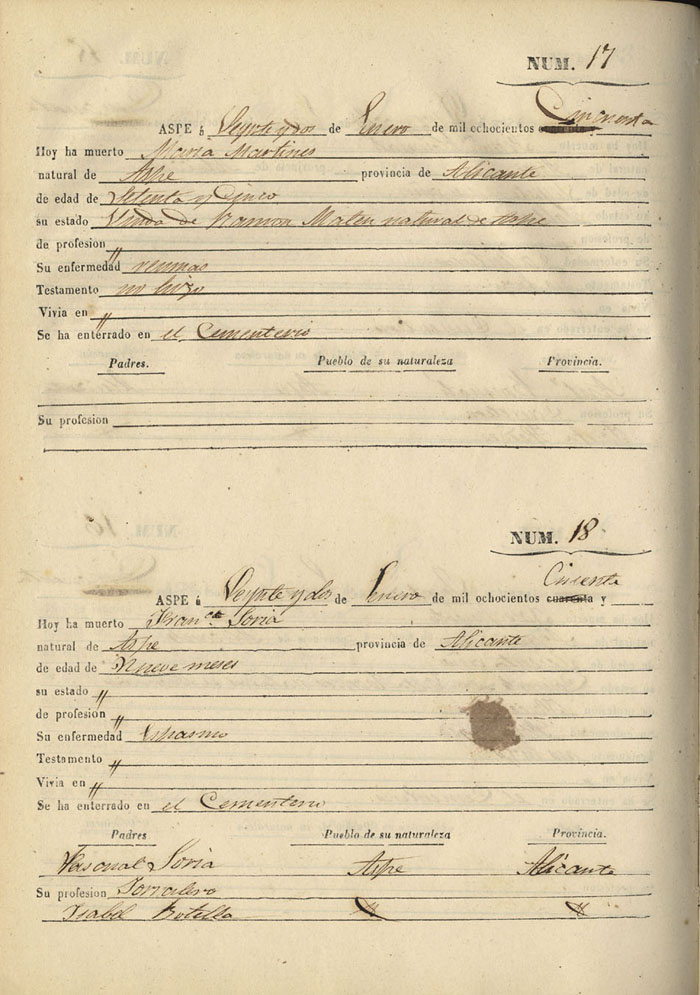 NUM. 17
ASPE á Veynte y dos de Enero de mil ochocientos Cincuenta
Hoy ha muerto Maria Martines
natural de Aspe provincia de Alicante
de edad de Setenta y Cinco
su estado Viuda de Ramon Mateu natural de Aspe
de profesion "
Su enfermedad reumas
Testamento no hizo
Vivia en "
Se ha enterrado en el Cementerio
Padres. Pueblo de su naturaleza Provincia.
Su profesion
NUM. 18
ASPE á Veynte y dos de Enero de mil ochocientos cuarenta y Cincuenta
Hoy ha muerto Franca Soria
natural de Aspe provincia de Alicante
de edad de Nueve meses
su estado "
de profesion "
Su enfermedad Espasmo
Testamento "
Vivia en "
Se ha enterrado en el Cementerio
Padres Pueblo de su naturaleza Provincia.
Pascual Soria Aspe Alicante
Su profesion Jornalero
Isabel Botella " "